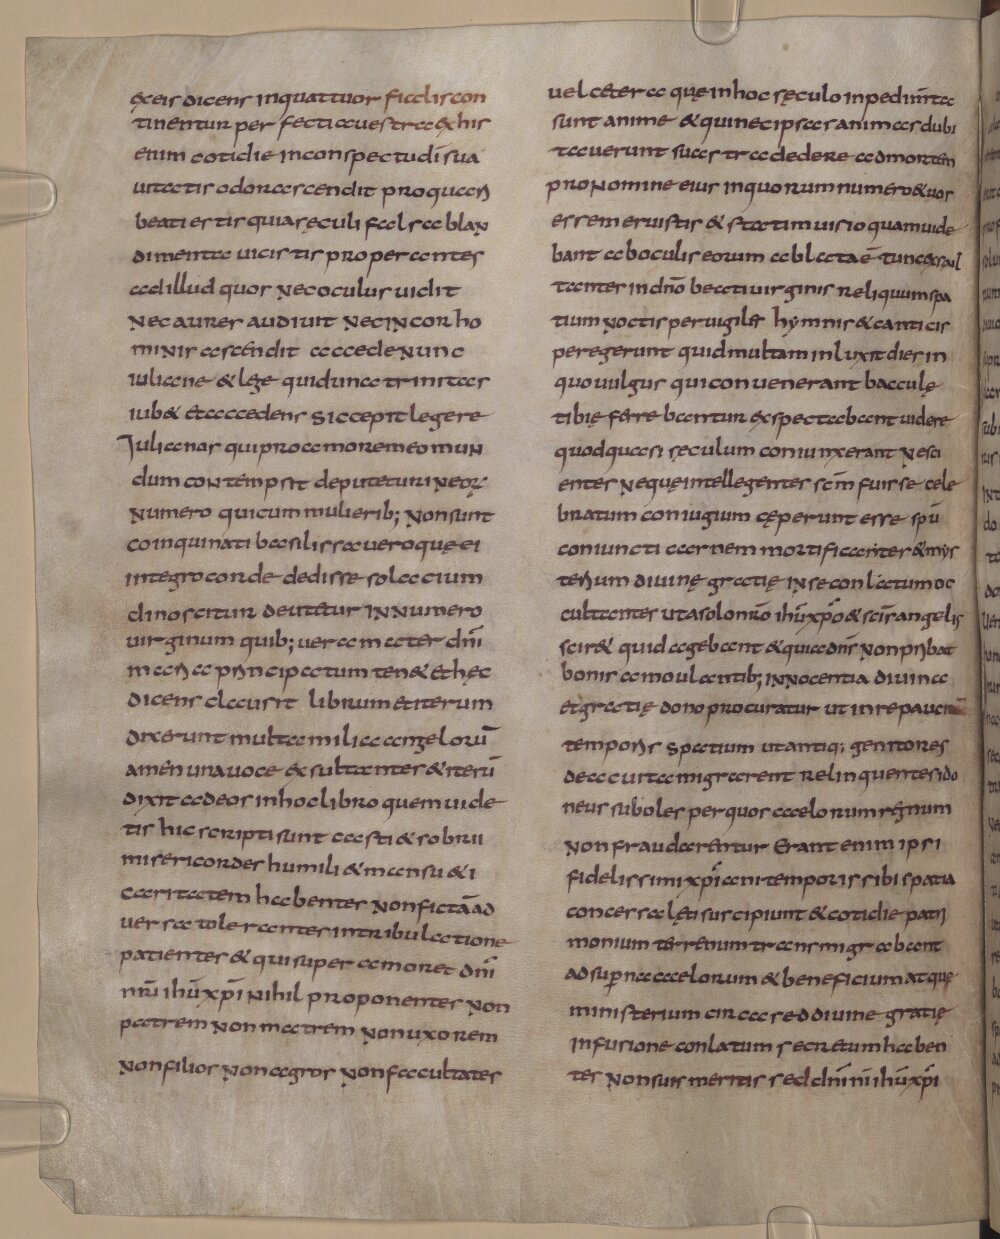 ex eis dicens in quattuor fialis con
tinentur perfecti a uestra & his
enim cotidie in conspectu dī sua
uitatis odor ascendit pro quam
beati estis quia sęculi falsa blan
dimenta uicistis properantes
ad illud quos nec oculus uidit
nec aures audiuit nec in cor ho
minis ascendit accede nunc
iuliane & lege quid una trinitas
iub& et accedens sic cepit legere
Iulianas qui pro amore meo mun
dum contempsit deputetur in eoꝝ
numero qui cum mulierib; non sunt
coinquinati basilissa uero quę ei
integro corde dedisse solacium
dinoscitur deutetur in numero
uirginum quib; uera mater dnī
maria principatum ten& et hęc
dicens clausit librum et iterum
dixerunt multa milia angelorū
amen una uoce exsultantes & iterū
dixit ad eos in hoc libro quem uide
tis hic scripti sunt casti & sobrii
misericordes humili & mansu&i
caritatem habentes non fictā ad
uersa tolerantes in tribulatione
patientes & qui super amorē dnī
nrī ihū xpī nihil proponentes non
patrem non matrem non uxorem
non filios non agros non facultates
uel cetera quę in hoc sęculo inpedimta
sunt anime & qui nec ipsas animas dubi
tauerunt suas tradedere ad mortem
pro nomine eius in quorum numero & uos
essem eruistis & statim uisio quam uide
bant ab oculis eorum ablata ē tunc exsul
tantes in dn̄o beati uirginis reliquum spa
tium noctis peruigiles hymnis & canticis
peregerunt quid multam inluxit dies in
quo uulgus qui conuenerant baculę
tibię ferre bantur exspectabant uidere
quod quasi sęculum coniunxerant nesci
entes neque intellegentes scm̄ fuisse cele
bratum coniugium cęperunt esse spū
coniuncti carnem mortificantes & mys
terium diuinę gratię in se conlatum oc
cultantes uta solo nr̄o ihū xpō & scīs angelis
scir& quid agebant & quia dn̄s non pribat
bonis a moulantib; innocentia diuina
et gratię dono procuratur ut in repauci
temporis spatium ut antiqi genitores
de ac uita migrarent relinquentes ido
neus suboles per quos caelorum regnum
non fraudarentur Erant enim ipsi
fidelissimi xpīani temporis sibi spatia
concessa lęti suscipiunt & cotidie patri
monium terrenum transmigrabant
ad superna caelorum & beneficium atque
ministerium circa sed diuine gratię
infusione conlatum secretum haben
tes non suis meritis sed dnī ni ihū xpī